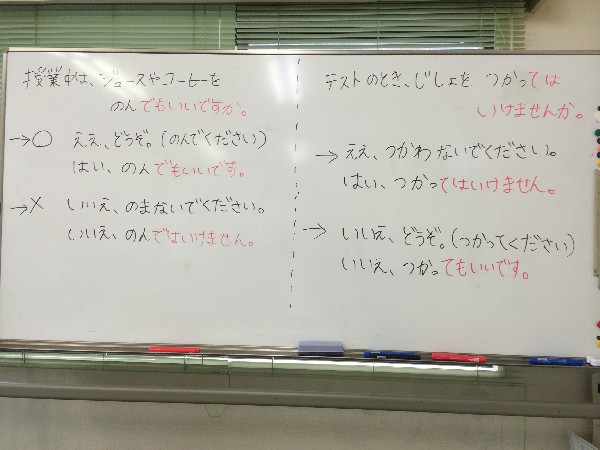 授業中は、ジュースやコーヒーを
のんでもいいですか。
→○ ええ、どうぞ。(のんでください)
はい、のんでもいいです。
→× いいえ、のまないでください。
いいえ、のんではいけません。
テストのとき、じしょを つかっては
いけませんか。
→ ええ、つかわないでください。
はい、つかってはいけません。
→ いいえ、どうぞ。(つかってください)
いいえ、つかってもいいです。